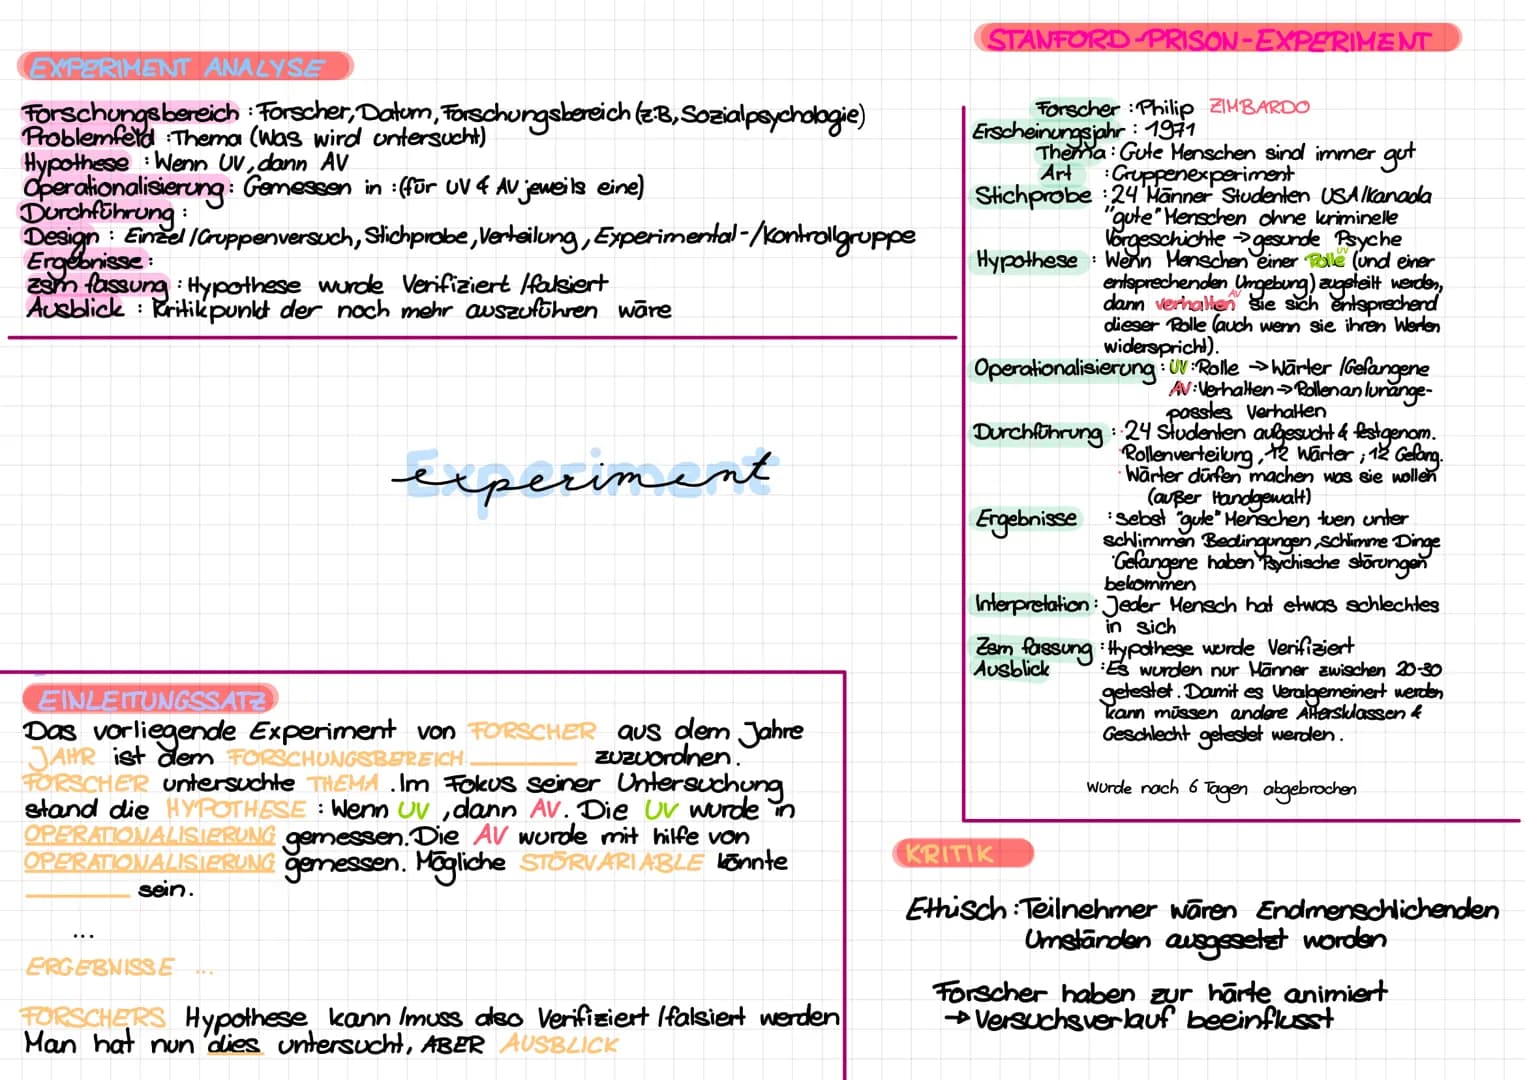 EXPERIMENT ANALYSE
Forschungsbereich : Forscher, Datum, Forschungsbereich (z.B, Sozialpsychologie)
Problemfeld : Thema (Was wird untersucht)
Hypothese : Wenn UV, dann AV
Operationalisierung : Gemessen in : (für UV & AV jeweils eine)
Durchführung :
Design : Einzel / Gruppenversuch, Stichprobe, Verteilung, Experimental-/Kontrollgruppe
Ergebnisse :
zsm fassung : Hypothese wurde Verifiziert / falsiert
Ausblick : Kritikpunkt der noch mehr auszuführen wäre
Experiment
experiment
EINLEITUNGSSATZ
Das vorliegende Experiment von FORSCHER aus dem Jahre
JAHR ist dem FORSCHUNGSBEREICH ________ zuzuordnen.
FORSCHER untersuchte THEMA . Im Fokus seiner Untersuchung
stand die HYPOTHESE : Wenn UV , dann AV. Die UV wurde in
OPERATIONALISIERUNG gemessen. Die AV wurde mit hilfe von
OPERATIONALISIERUNG gemessen. Mögliche STÖRVARIABLE könnte
________ sein.
...
ERGEBNISSE ...
FORSCHERS Hypothese kann /muss also Verifiziert /falsiert werden
Man hat nun dies untersucht, ABER AUSBLICK
STANFORD-PRISON-EXPERIMENT
Forscher : Philip ZIMBARDO
Erscheinungsjahr : 1971
Thema : Gute Menschen sind immer gut
Art : Gruppenexperiment
Stichprobe : 24 Männer Studenten USA/Kanada
"gute" Menschen ohne kriminelle
Vorgeschichte → gesunde Psyche
Hypothese : Wenn Menschen einer Rolle UV (und einer
entsprechenden Umgebung) zugeteilt werden,
dann verhalten AV sie sich entsprechend
dieser Rolle (auch wenn sie ihren Werten
widerspricht).
Operationalisierung : UV : Rolle → Wärter / Gefangene
AV : Verhalten → Rollenan/unange-
passtes Verhalten
Durchführung : · 24 Studenten aufgesucht & festgenom.
· Rollenverteilung, 12 Wärter ; 12 Gefang.
· Wärter dürfen machen was sie wollen
(außer Handgewalt)
Ergebnisse : Sebst "gute" Menschen tuen unter
schlimmen Bedingungen, schlimme Dinge
· Gefangene haben Psychische störungen
bekommen
Interpretation : Jeder Mensch hat etwas schlechtes
in sich
Zsm fassung : Hypothese wurde Verifiziert
Ausblick : Es wurden nur Männer zwischen 20-30
getestet. Damit es Veralgemeinert werden
kann müssen andere Altersklassen &
Geschlecht getestet werden.
Wurde nach 6 Tagen abgebrochen
KRITIK
Ethisch : Teilnehmer wären Endmenschlichenden
Umständen ausgesetzt worden
Forscher haben zur härte animiert
→ Versuchsverlauf beeinflusst